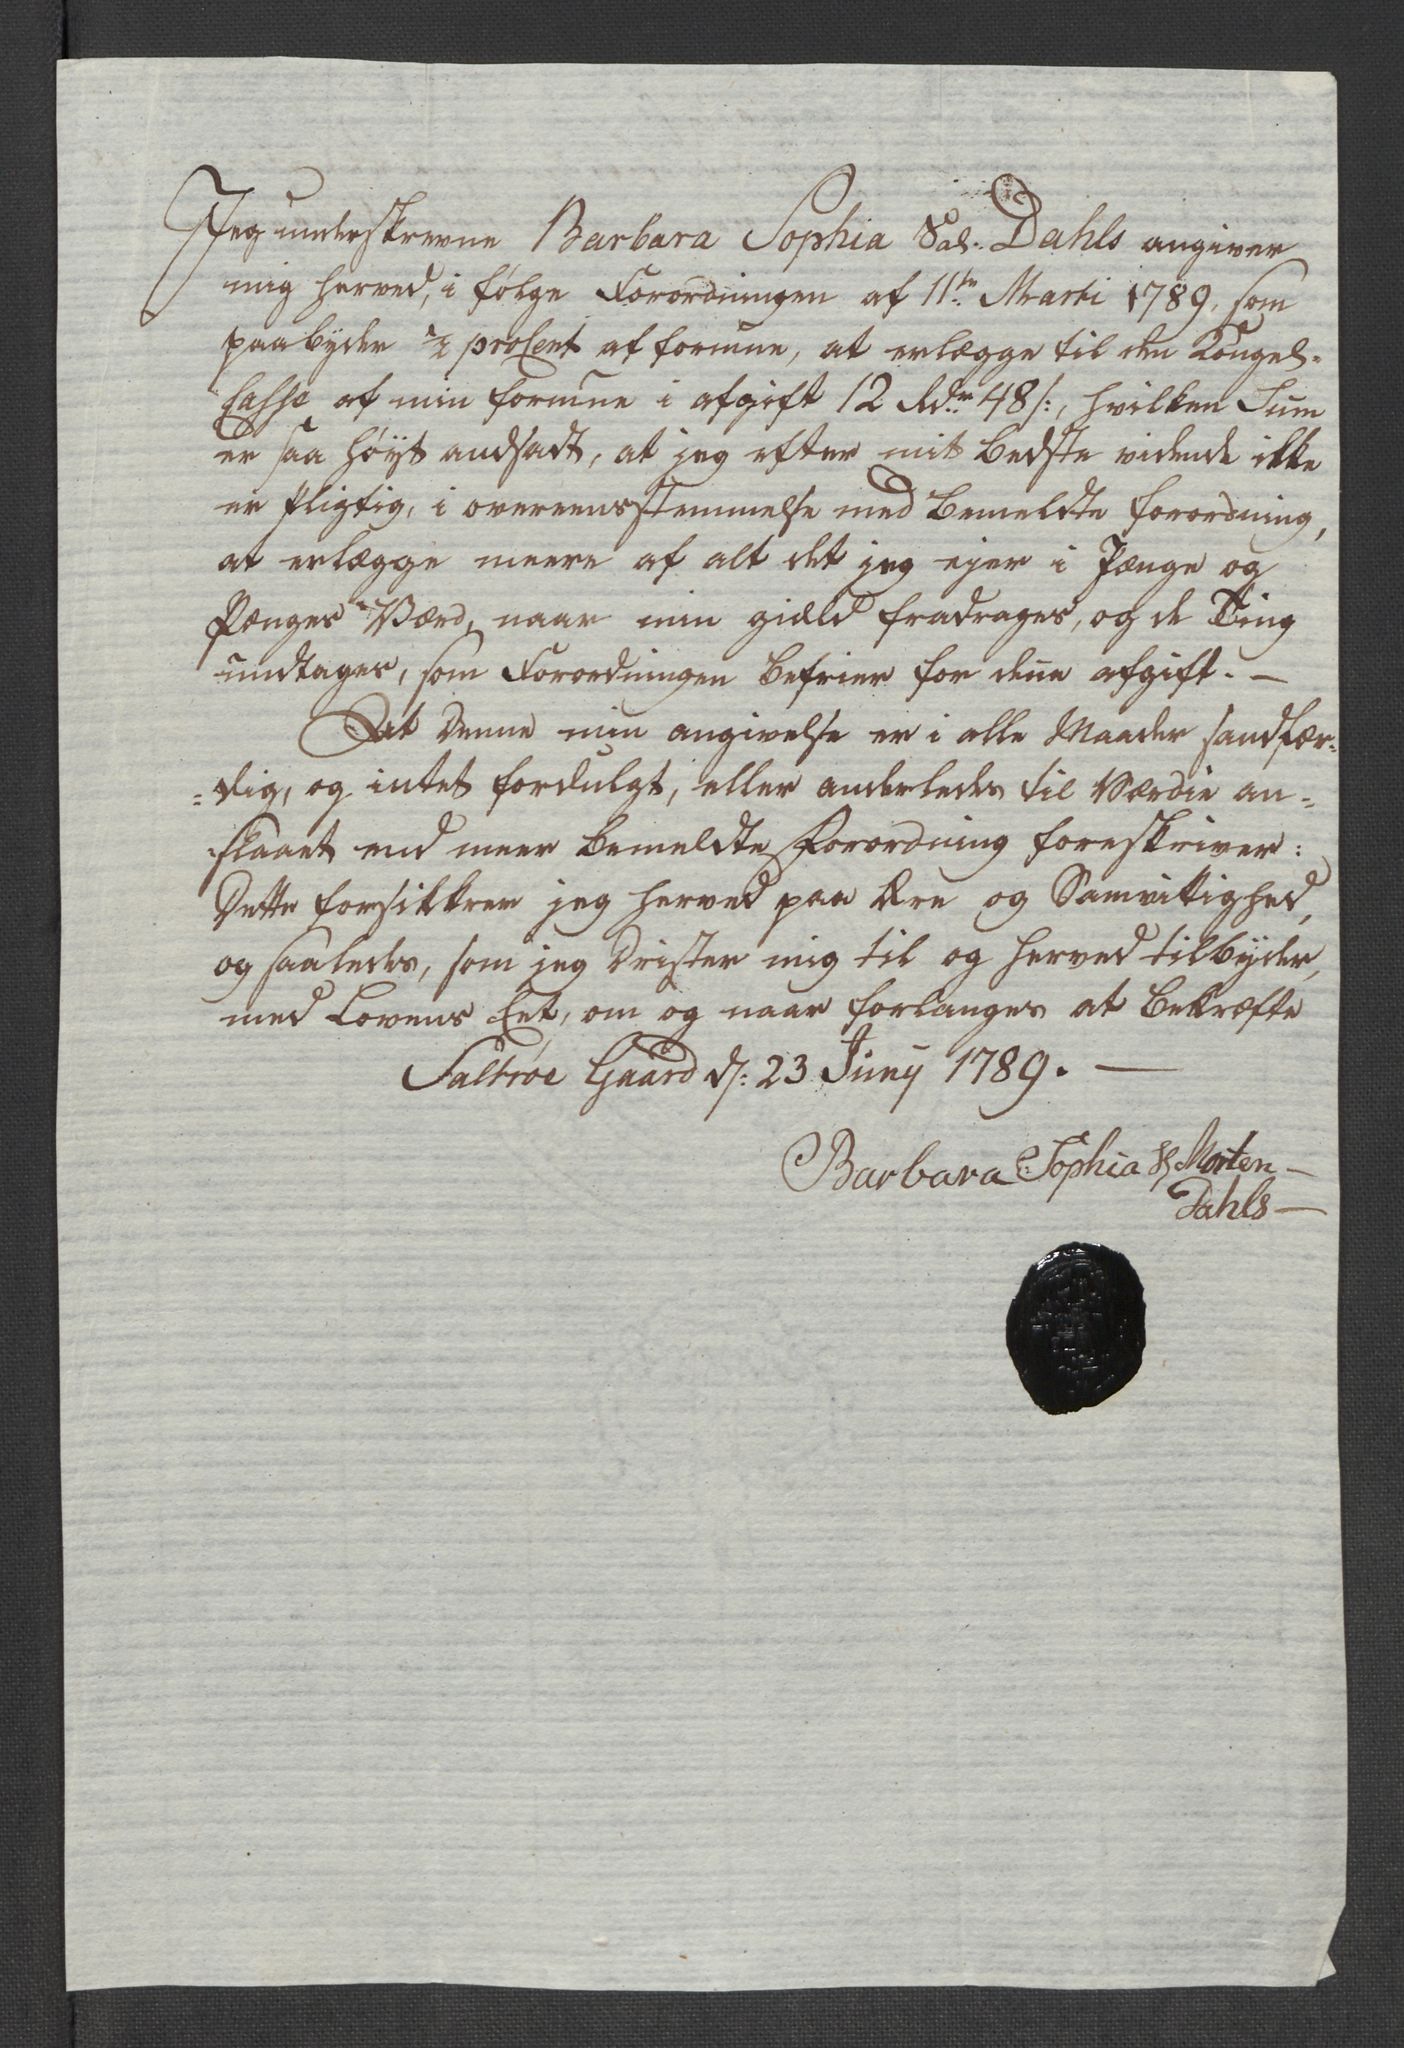 Jeg underskrevne Barbara Sophia Sal. Dahls angiver
mig herved, i følge Forordningen af 11te Marti 1789, som
paabyder ½ proCent af formue, at erlægge til den Kongel.
Casse af min formue i afgift 12 Rdr 48 s:, hvilken Sum
er saa høyt andsadt, at jeg efter mit bedste vidende ikke
er pligtig, i overeensstemmelse med bemeldte forordning,
at erlægge meere af alt det jeg ejer i Penge og
Penges Værd, naar min gield fradrages, og de Ting
undtages, som Forordningen befrier for denne afgift. —
At denne min angivelse er i alle Maader sandfær-
=dig, og intet fordulgt, eller anderledes til Værdie an=
slaaet end meer bemeldte Forordning foreskriver:
Dette forsikkrer jeg herved paa Ære og Samvittighed,
og saaledes, som jeg drister mig til og herved tilbyder,
med Lovens Eet, om og naar forlanges at bekræfte
Saltrøe Gaard d: 23 Juny 1789. —
Barbara Sophia S. Morten —
Dahls —